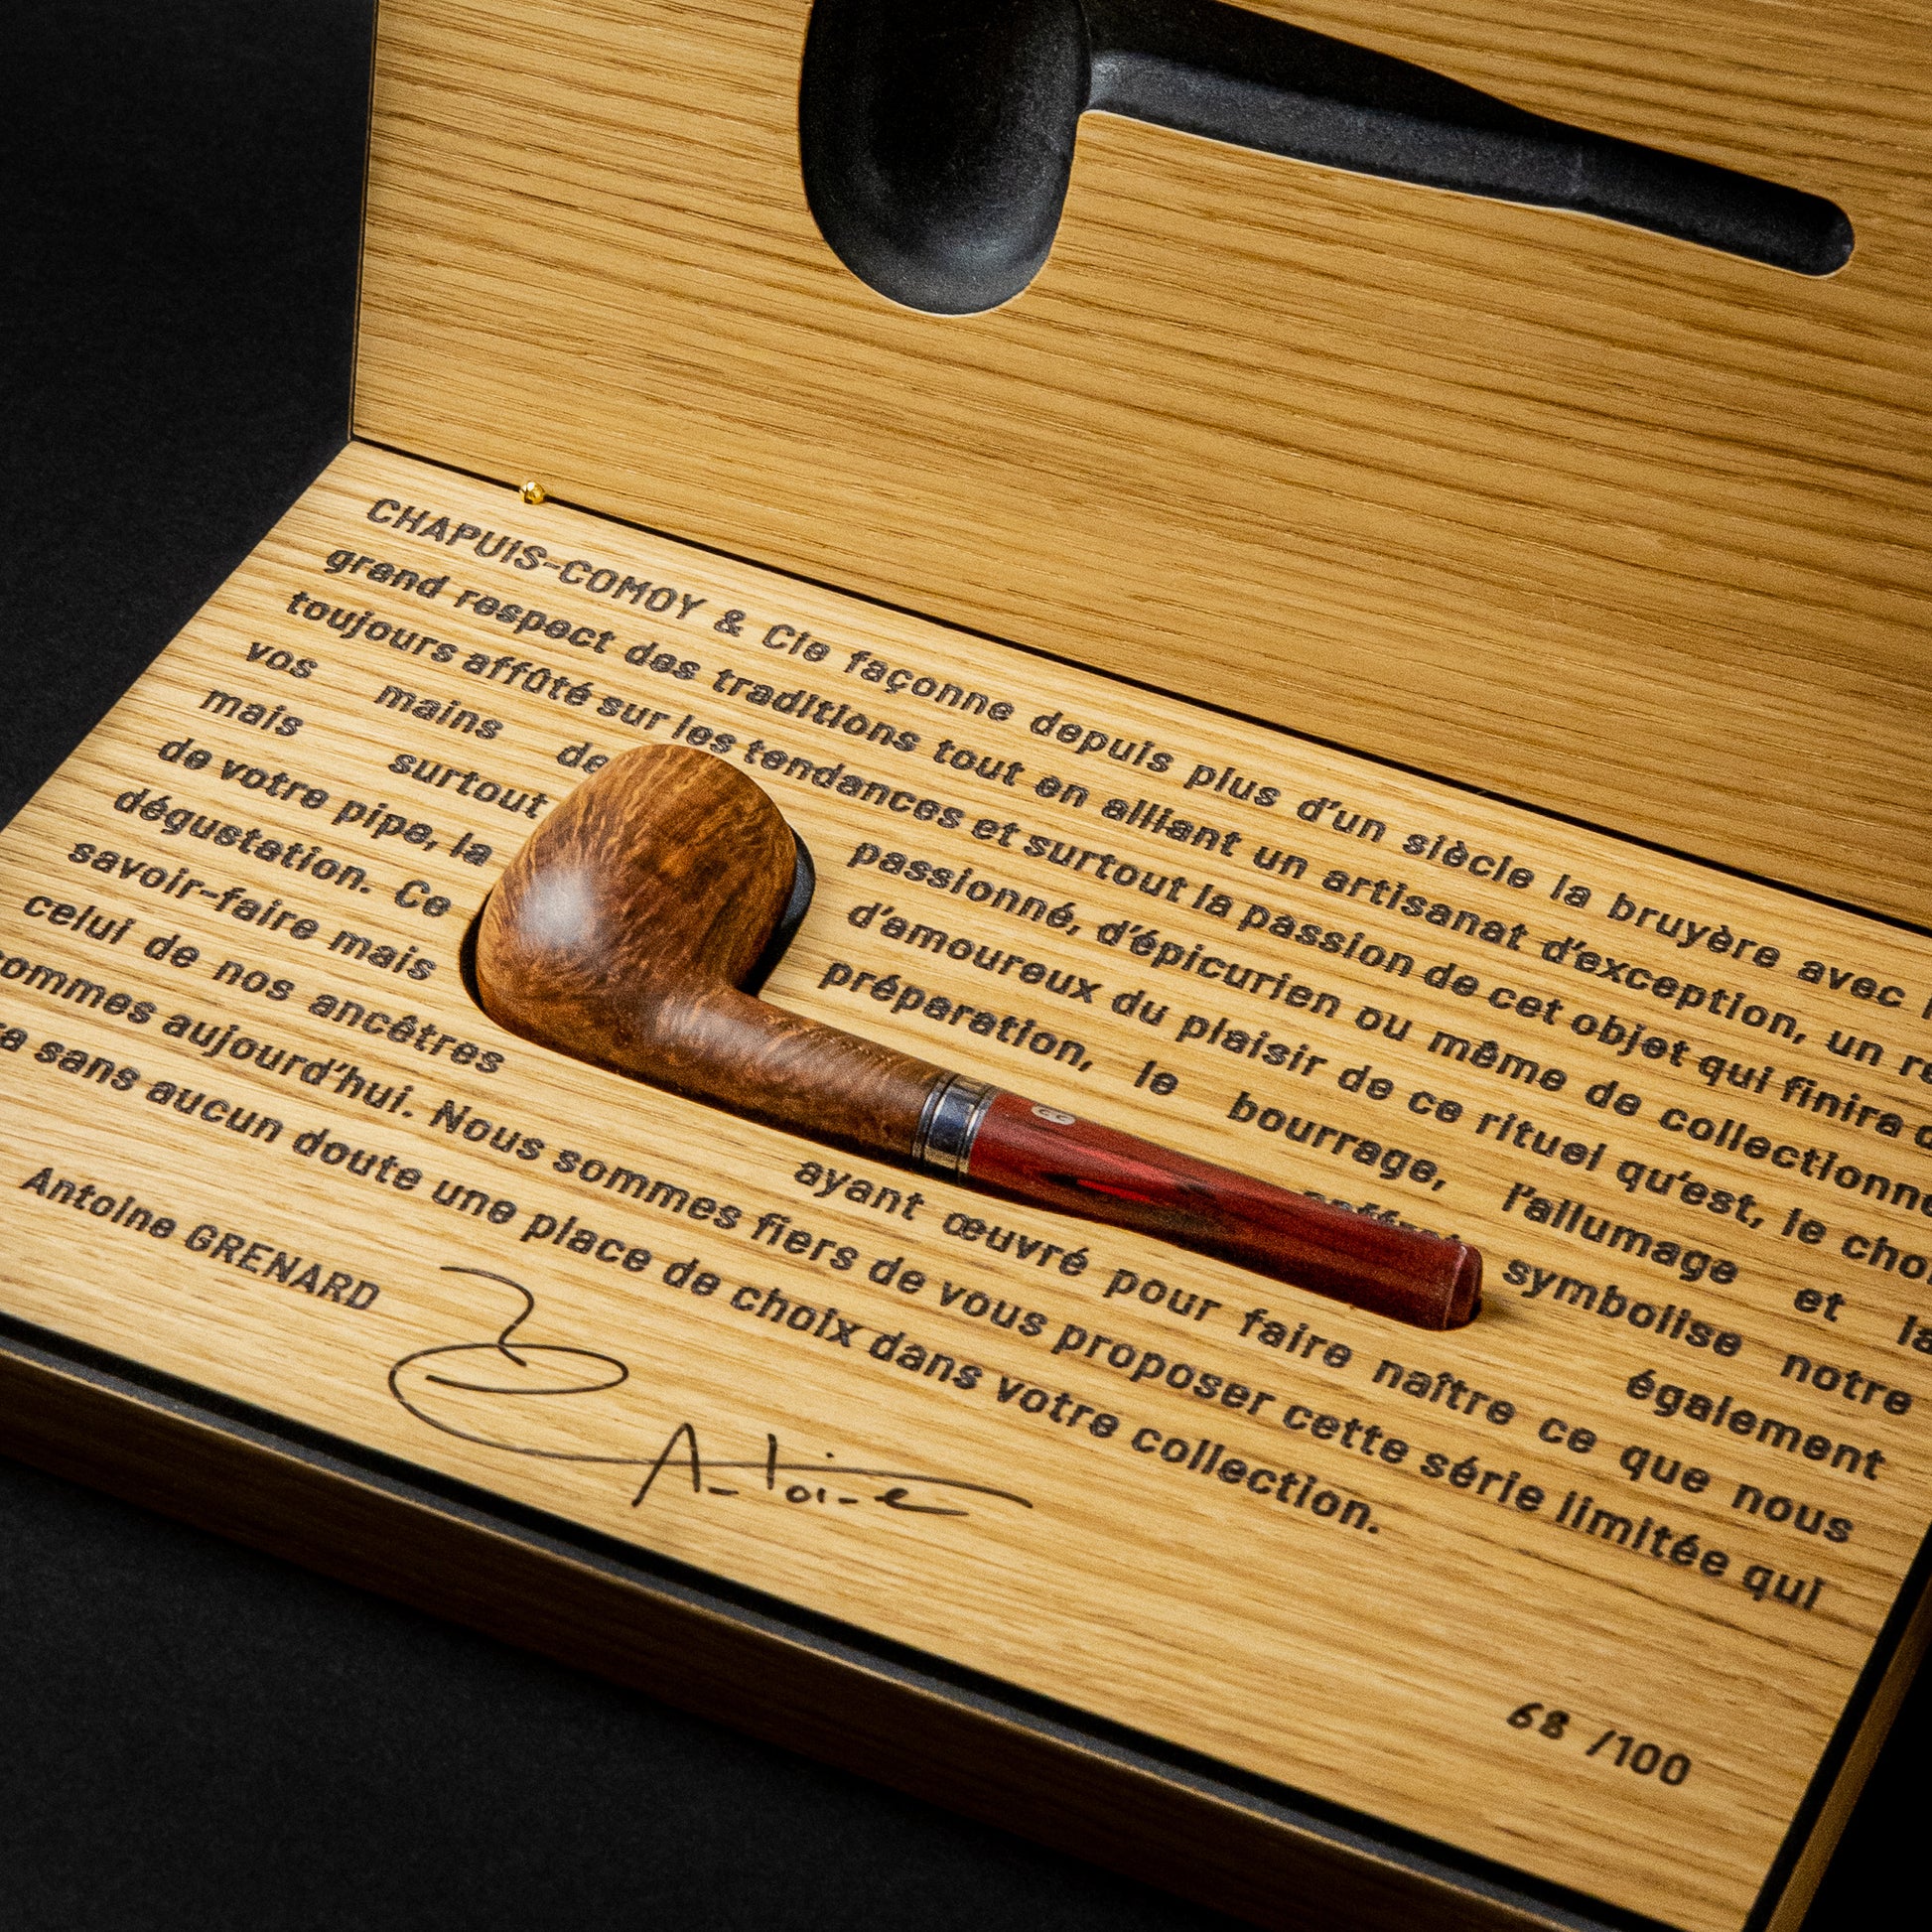 CHAPUIS-COMOY & Cie façonne depuis plus d'un siècle la bruyère avec
grand respect des traditions tout en alliant un artisanat d'exception, un
toujours affûté sur les tendances et surtout la passion de cet objet qui finira
vos mains de passionné, d'épicurien ou même de
mais surtout d'amoureux du plaisir de ce rituel qu'est, le
de votre pipe, la préparation, le bourrage, l'allumage et la
dégustation. Ce symbolise notre
savoir-faire mais également
celui de nos ancêtres ayant œuvré pour faire naître ce que nous
sommes aujourd'hui. Nous sommes fiers de vous proposer cette série limitée qui
sans aucun doute une place de choix dans votre collection.
Antoine GRENARD
Antoine
68 /100